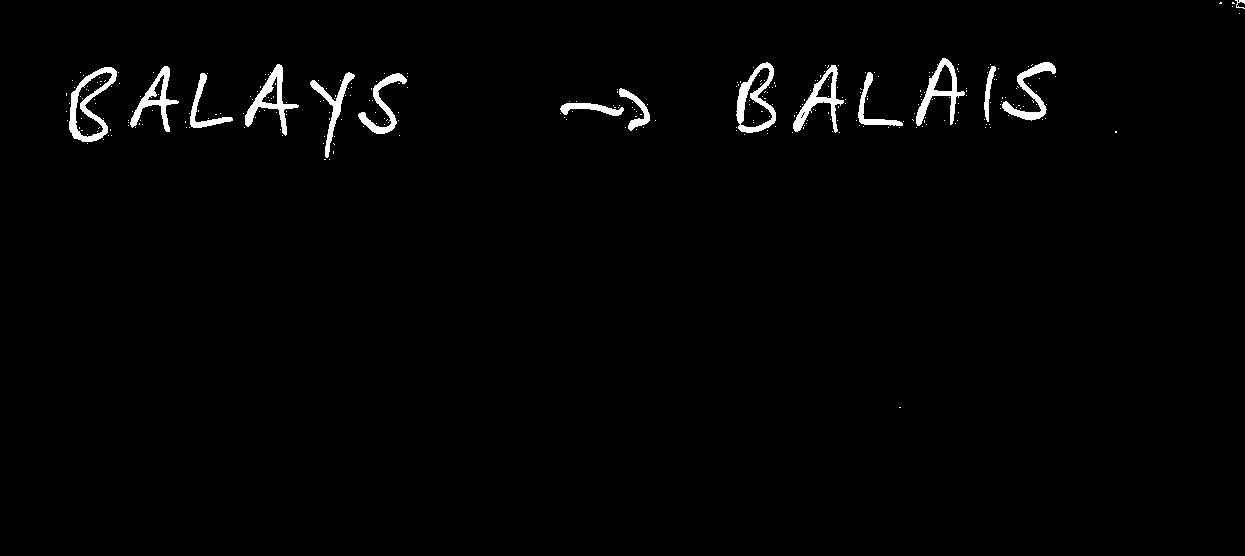 BALAYS → BALAIS